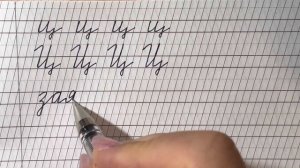 ц ц ц ц
Ц Ц Ц Ц
зая